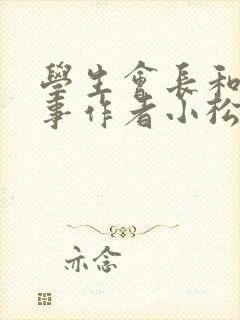 學生會長和
事作者小松
亦念